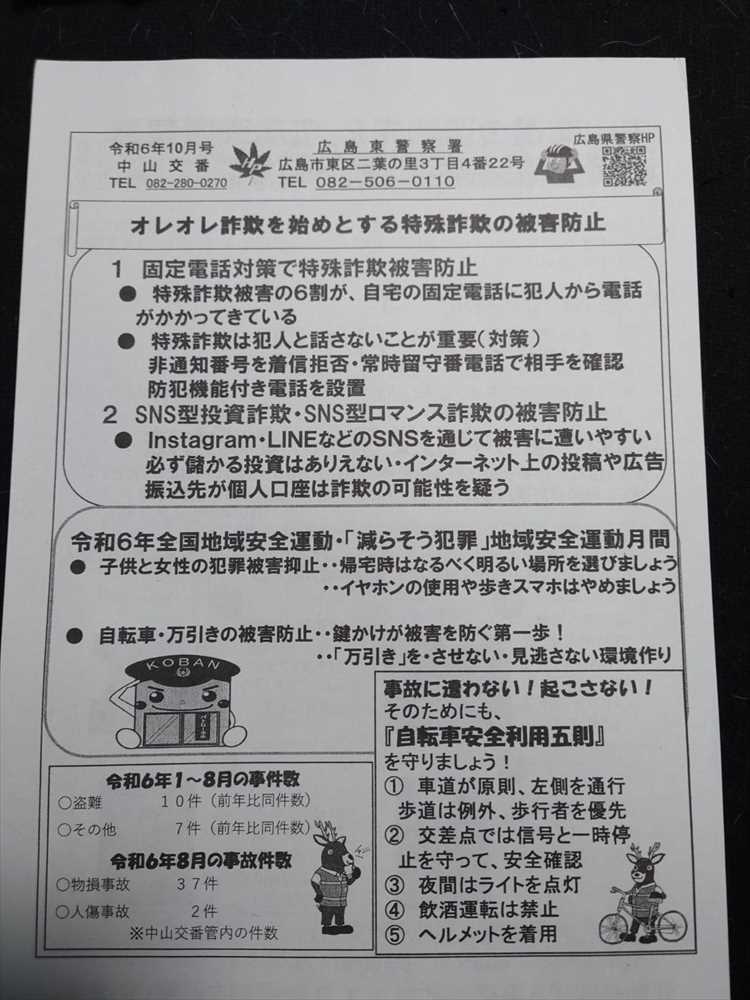 令和6年10月号
中山交番
TEL 082-280-0270
HP
広島東警察署
広島市東区二葉の里3丁目4番22号
TEL 082-506-0110
広島県警察HP
オレオレ詐欺を始めとする特殊詐欺の被害防止
1 固定電話対策で特殊詐欺被害防止
● 特殊詐欺被害の6割が、自宅の固定電話に犯人から電話
がかかってきている
● 特殊詐欺は犯人と話さないことが重要(対策)
非通知番号を着信拒否・常時留守番電話で相手を確認
防犯機能付き電話を設置
2 SNS型投資詐欺・SNS型ロマンス詐欺の被害防止
● Instagram・LINEなどのSNSを通じて被害に遭いやすい
必ず儲かる投資はありえない・インターネット上の投稿や広告
振込先が個人口座は詐欺の可能性を疑う
令和6年全国地域安全運動・「減らそう犯罪」地域安全運動月間
● 子供と女性の犯罪被害抑止・・帰宅時はなるべく明るい場所を選びましょう
・・イヤホンの使用や歩きスマホはやめましょう
● 自転車・万引きの被害防止・・鍵かけが被害を防ぐ第一歩!
・・「万引き」を・させない・見逃さない環境作り
KOBAN
令和6年1~8月の事件数
○盗難 10件(前年比同件数)
○その他 7件(前年比同件数)
令和6年8月の事故件数
○物損事故 37件
○人傷事故 2件
※中山交番管内の件数
事故に遭わない!起こさない!
そのためにも、
『自転車安全利用五則』
を守りましょう!
① 車道が原則、左側を通行
歩道は例外、歩行者を優先
② 交差点では信号と一時停
止を守って、安全確認
③ 夜間はライトを点灯
④ 飲酒運転は禁止
⑤ ヘルメットを着用